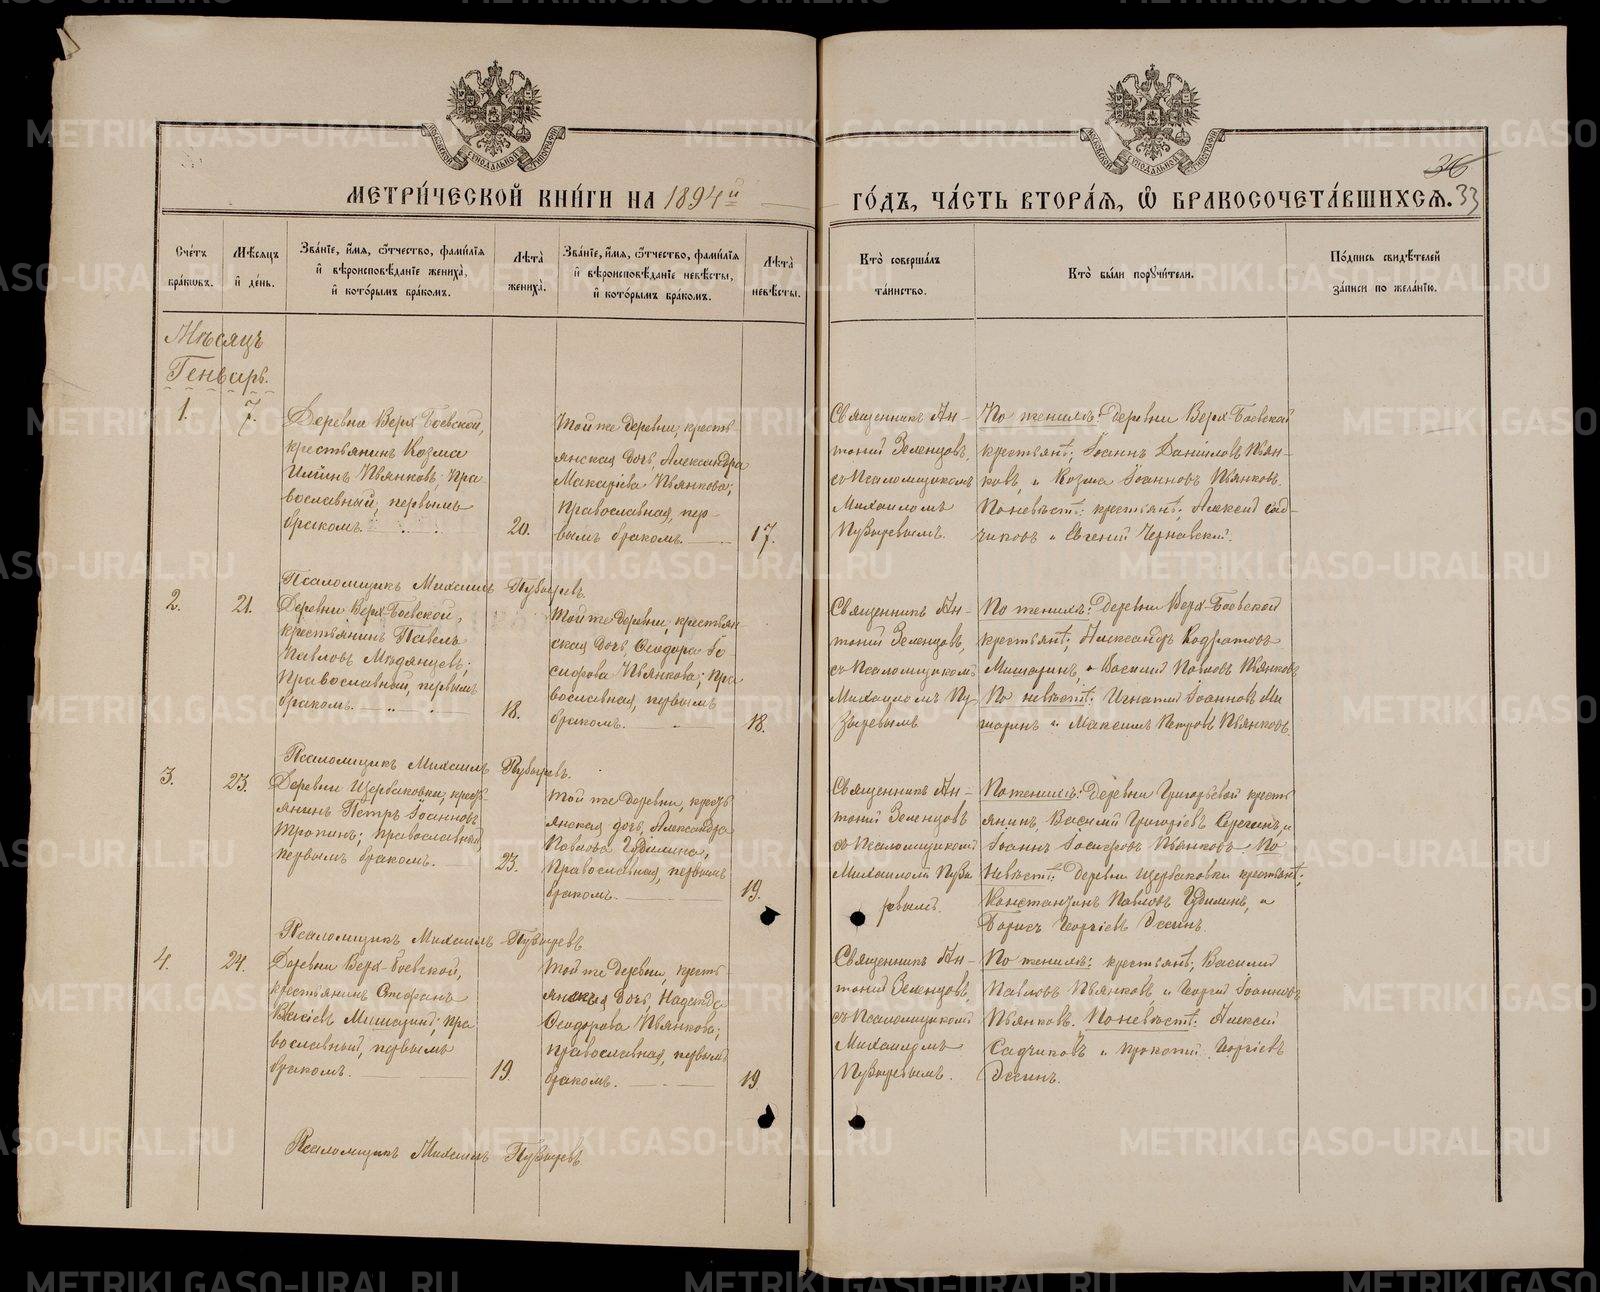 МЕТРИ́ЧЕСКОЙ КНИ́ГИ НА 1894й
ГО́ДЪ, ЧА́СТЬ ВТОРА́Я, Ѡ҆ БРАКОСОЧЕТА́ВШИХСЯ.
36
33
Сче́тъ бра́кѡвъ.
Мѣ́сяцъ и҆ де́нь.
Зва́нїе, и҆́мя, ѻ҆́тчество, фами́лїя
и҆ вѣроисповѣ́данїе жениха̀,
и҆ кото́рымъ бра́комъ.
Лѣта̀ жениха̀.
Зва́нїе, и҆́мя, ѻ҆́тчество, фами́лїя
и҆ вѣроисповѣ́данїе невѣ́сты,
и҆ кото́рымъ бра́комъ.
Лѣта̀ невѣ́сты.
Кто̀ соверша́лъ
та́инство.
Кто̀ бы́ли порꙋчи́тели.
По́дпись свидѣ́телей
за́писи по жела́нїю.
Мѣсяцъ
Генварь.
1.
7.
Деревни Верх-Боевской,
крестьянинъ Козма
Ильинъ Пьянковъ; Пра
вославный, первымъ
бракомъ.
20.
Той же деревни, кресть
янская дочь, Александра
Макаріева Пьянкова;
Православная, пер-
вымъ бракомъ.
17.
Священникъ Ан-
тоній Зеленцовъ,
съ Псаломщикомъ
Михаиломъ
Пузыревымъ.
По женихѣ: деревни Верх-Боевской
крестьяне; Іоаннъ Даниловъ Пьян-
ковъ, и Козма Іоанновъ Пьянковъ.
По невѣстѣ: крестьяне; Алексій Сад-
чиковъ и Евгеній Чернавский.
Псаломщикъ Михаилъ Пузыревъ.
2.
21.
Деревни Верх-Боевской,
крестьянинъ Павелъ
Павловъ Медянцевъ;
Православный, первымъ
бракомъ.
18.
Той же деревни, крестьян
ская дочь, Ѳеодора Іо-
сифова Пьянкова; Пра
вославная, первымъ
бракомъ.
18.
Священникъ Ан-
тоній Зеленцовъ,
съ Псаломщикомъ
Михаиломъ Пу
зыревымъ
По женихѣ: деревни Верх-Боевской
крестьяне; Александръ Кодратовъ
Мишаринъ, и Василій Павловъ Пьянковъ
По невѣстѣ: Игнатій Іоанновъ Ми
шаринъ и Максимъ Петровъ Пьянковъ.
Псаломщикъ Михаилъ Пузыревъ.
3.
23.
Деревни Щербаковки, кресть
янинъ Петръ Іоанновъ
Тропинъ; православный
первымъ бракомъ.
23.
Той же деревни, кресть
янская дочь, Александра
Павлова Гудилина;
Православная, первымъ
бракомъ.
19.
Священникъ Ан-
тоній Зеленцовъ
съ Псаломщикомъ
Михаиломъ Пузы
ревымъ.
По женихѣ: деревни Григорьевой кресть
янинъ, Василій Григоріевъ Сергинъ, и
Іоаннъ Іосифовъ Пьянковъ. По
Невѣстѣ: деревни Щербаковки крестьяне;
Константинъ Павловъ Гудилинъ, и
Борисъ Георгіевъ
Псаломщикъ Михаилъ Пузыревъ
4.
24.
Деревни Верх-Боевской,
крестьянинъ Стефанъ
Мишаринъ; пра
вославный, первымъ
бракомъ.
19.
Той же деревни, кресть
янская дочь, Надежда
Ѳеодорова Пьянкова;
православная, первымъ
бракомъ.
19.
Священникъ Ан-
тоній Зеленцовъ,
съ Псаломщикомъ
Михаиломъ
Пузыревымъ.
По женихѣ: крестьяне; Василій
Павловъ Пьянковъ, и Георгій Іоанновъ
Пьянковъ. По невѣстѣ: Алексій
Садчиковъ и Прокопій Георгіевъ
Псаломщикъ Михаилъ Пузыревъ
METRIKI.GASO-URAL.RU